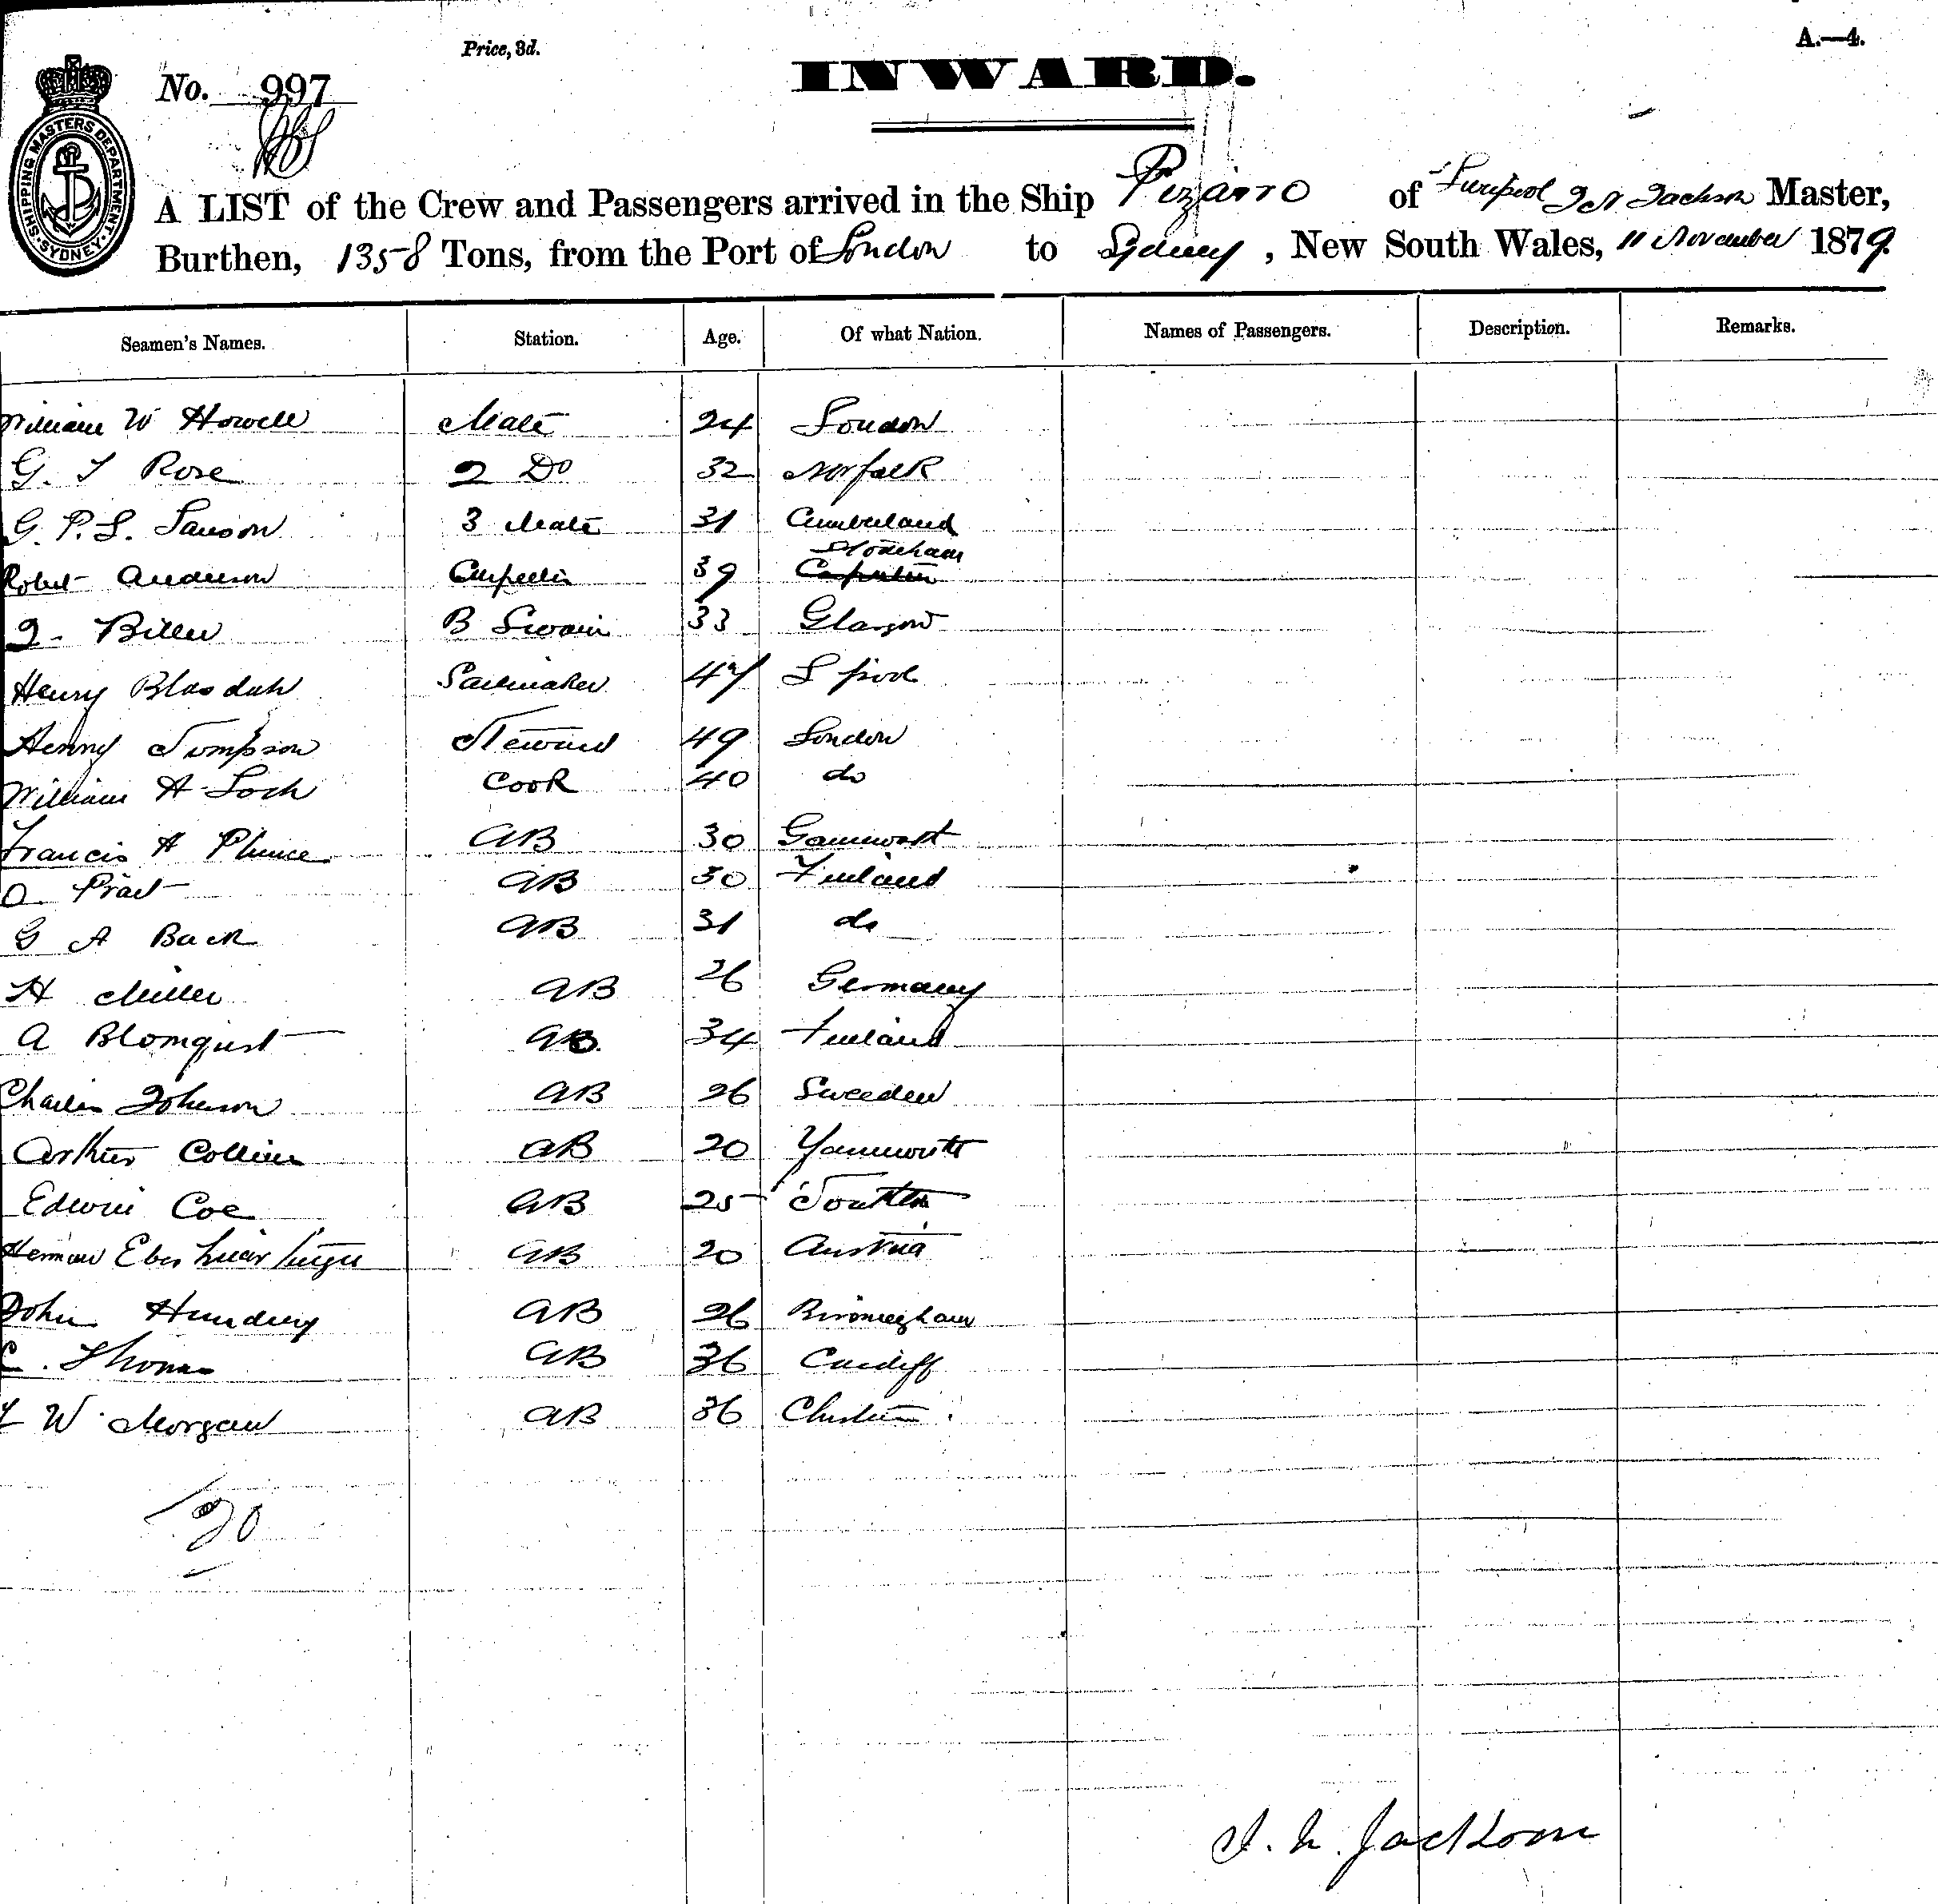 Price, 3d.
A.—4.
No. 997
INWARD.
SHIPPING MASTERS DEPARTMENT. SYDNEY.
A LIST of the Crew and Passengers arrived in the Ship Pizarro of Liverpool Jackson Master,
Burthen, 1358 Tons, from the Port of London to Sydney, New South Wales, 11 November 1879.
Seamen's Names. Station. Age. Of what Nation. Names of Passengers. Description. Remarks.
William W Howell Mate 24 London
G. T Rose 2 Do 32 Norfolk
G. P. L. 3 Mate 31 Cumberland
Robert Anderson Carpenter 39
Biller B Swain 33 Glasgow
Henry Blasdale Sailmaker 47 L pool
Henry Simpson Steward 49 London
William H Loch Cook 40 do
Francis H AB 30
AB 30 Finland
G A Back AB 31 do
H Miller AB 26 Germany
A Blomquist AB 34 Finland
Charles Johnson AB 26 Sweeden
Arthur Collins AB 20 Yarmouth
Edwin Coe AB 25
Herman AB 20 Austria
John AB 26 Birmingham
C. Thomas AB 36 Cardiff
W Morgan AB 36
20
Jackson